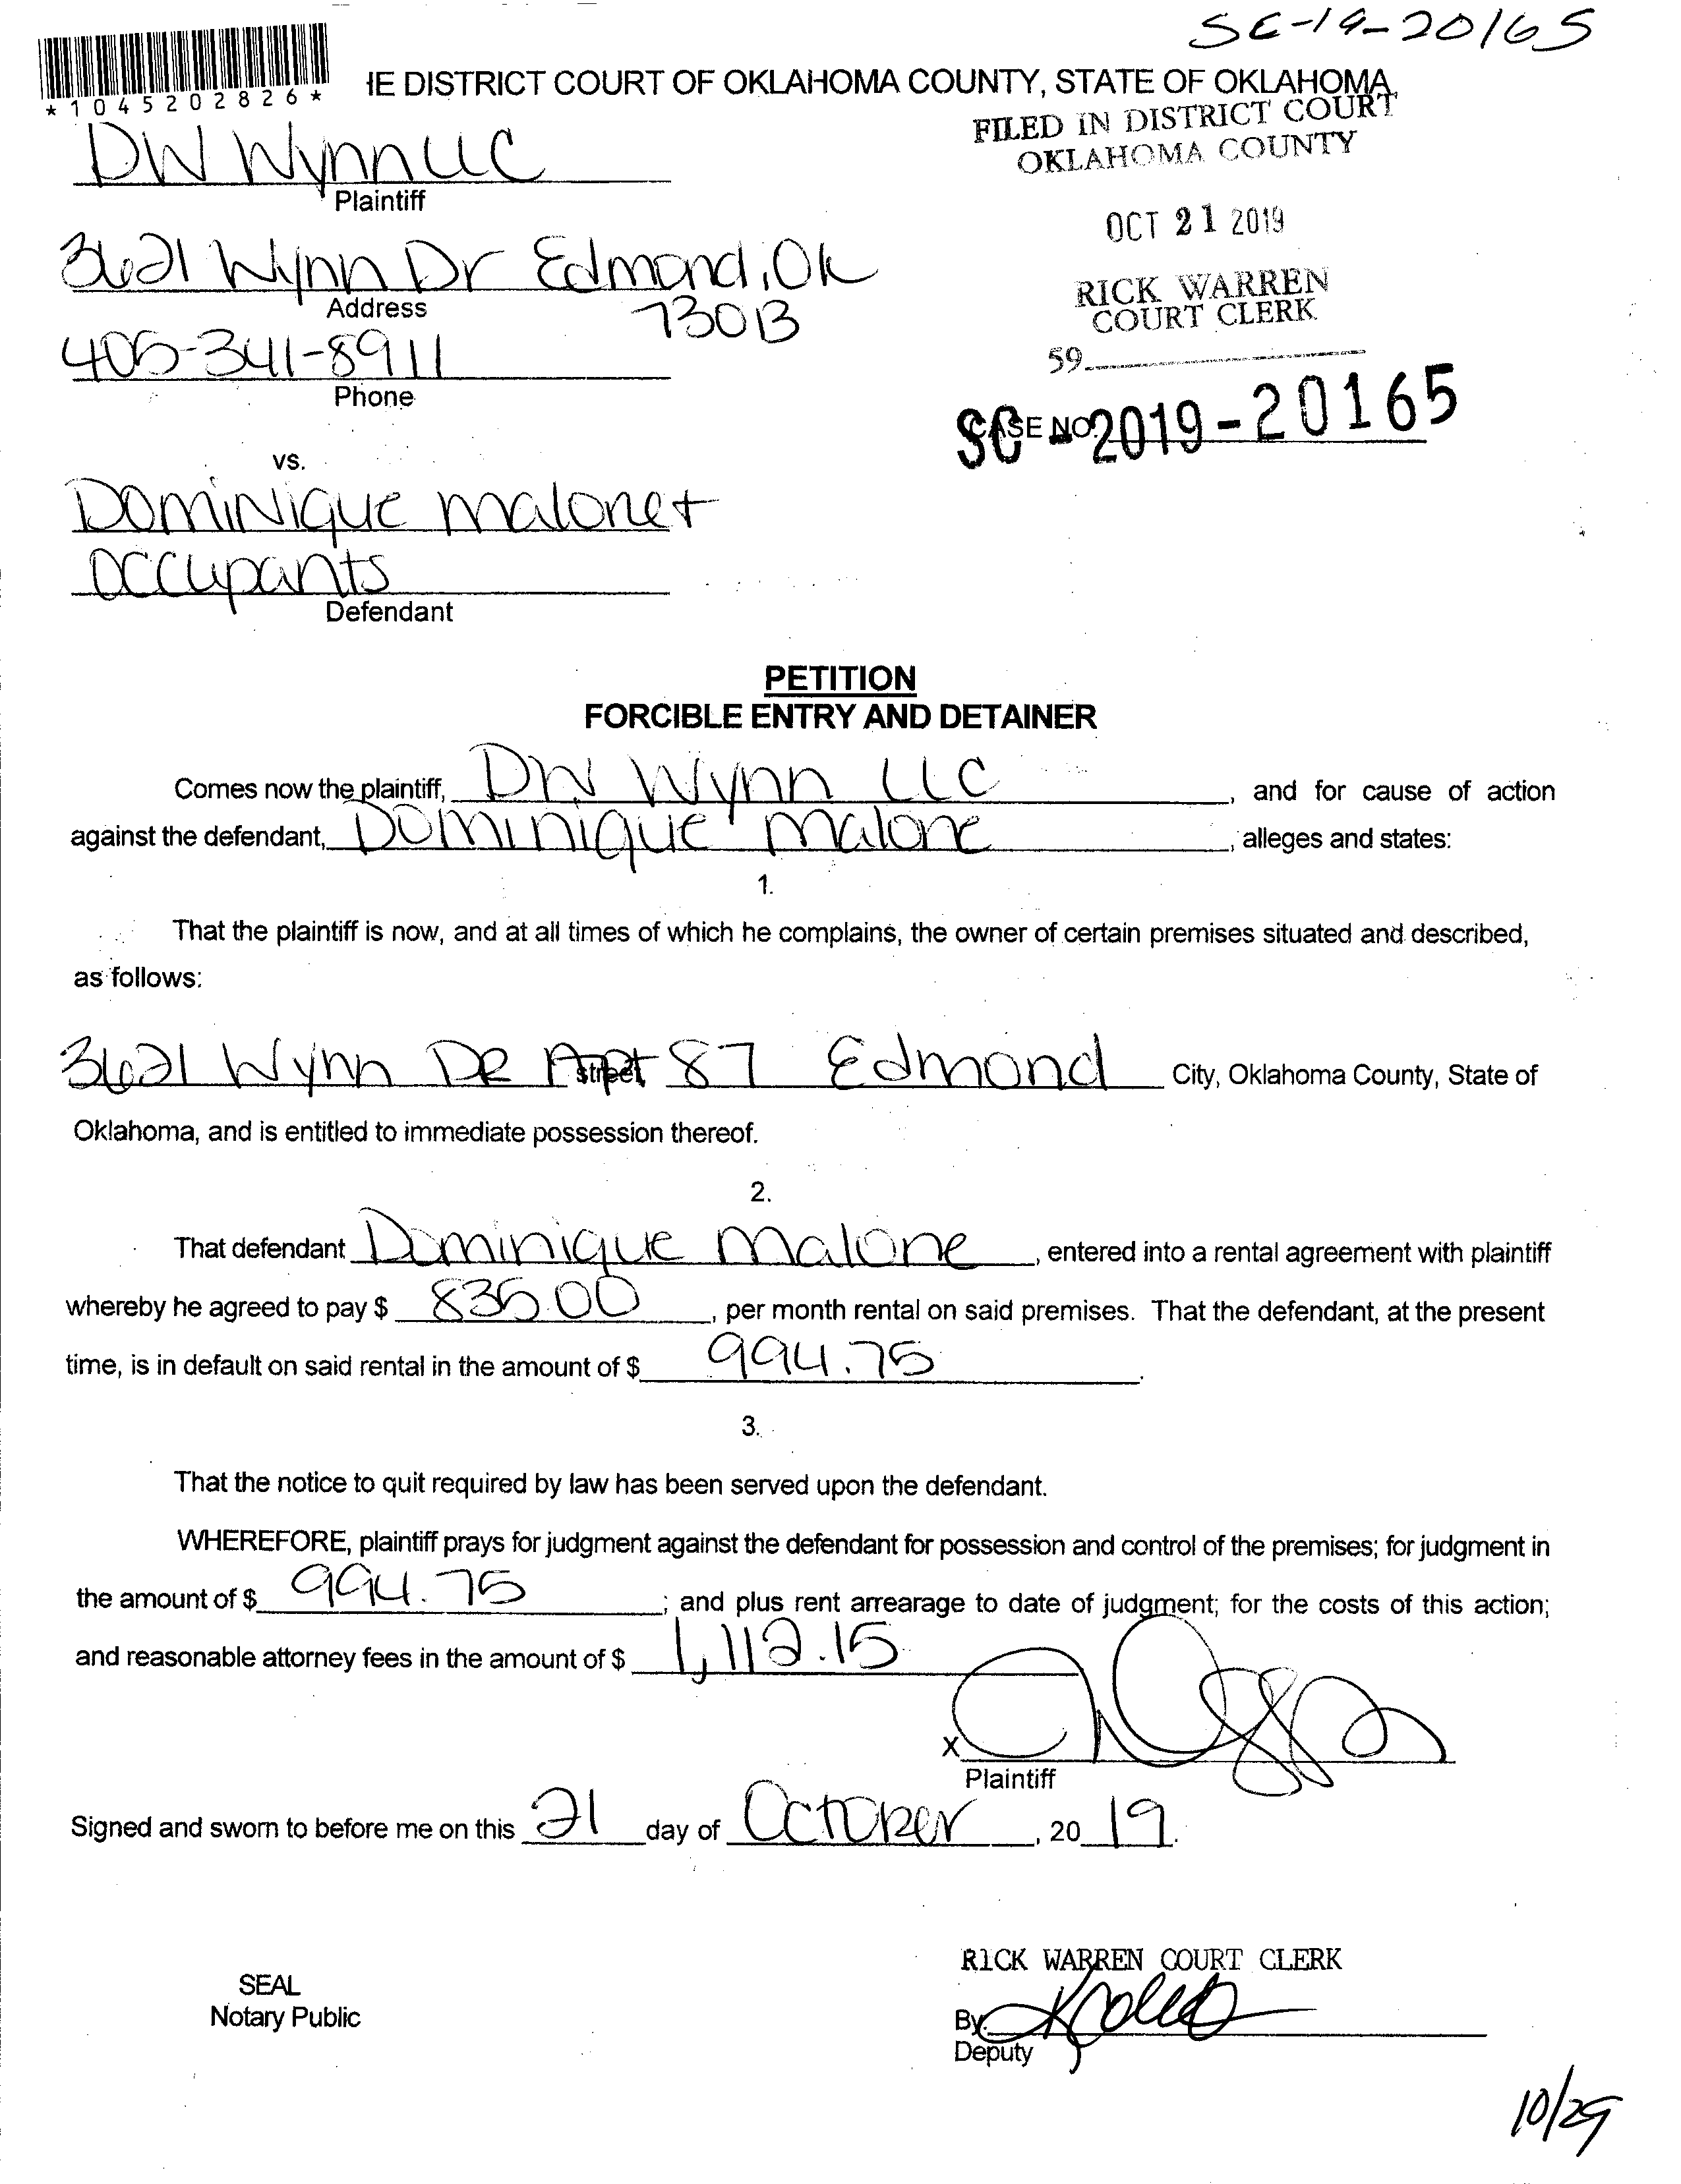 SC-19-20165
*1045202826*
HE DISTRICT COURT OF OKLAHOMA COUNTY, STATE OF OKLAHOMA
FILED IN DISTRICT COURT
OKLAHOMA COUNTY
DW Wynn LLC
Plaintiff
OCT 21 2019
3621 Wynn Dr Edmond, Ok
Address
73013
RICK WARREN
COURT CLERK
405-341-8911
Phone
59
CASE NO.
SC - 2019 - 20165
vs.
Dominique Malone +
Occupants
Defendant
PETITION
FORCIBLE ENTRY AND DETAINER
Comes now the plaintiff, DW Wynn LLC, and for cause of action
against the defendant, Dominique Malone, alleges and states:
1.
That the plaintiff is now, and at all times of which he complains, the owner of certain premises situated and described,
as follows:
3621 Wynn DR Apt 87 Edmond City, Oklahoma County, State of
street
Oklahoma, and is entitled to immediate possession thereof.
2.
That defendant Dominique Malone, entered into a rental agreement with plaintiff
whereby he agreed to pay $ 835.00, per month rental on said premises. That the defendant, at the present
time, is in default on said rental in the amount of $ 994.75.
3.
That the notice to quit required by law has been served upon the defendant.
WHEREFORE, plaintiff prays for judgment against the defendant for possession and control of the premises; for judgment in
the amount of $ 994.75; and plus rent arrearage to date of judgment; for the costs of this action;
and reasonable attorney fees in the amount of $ 1,112.15
X
Plaintiff
Signed and sworn to before me on this 21 day of October, 2019.
RICK WARREN COURT CLERK
SEAL
Notary Public
By:
Deputy
10/29